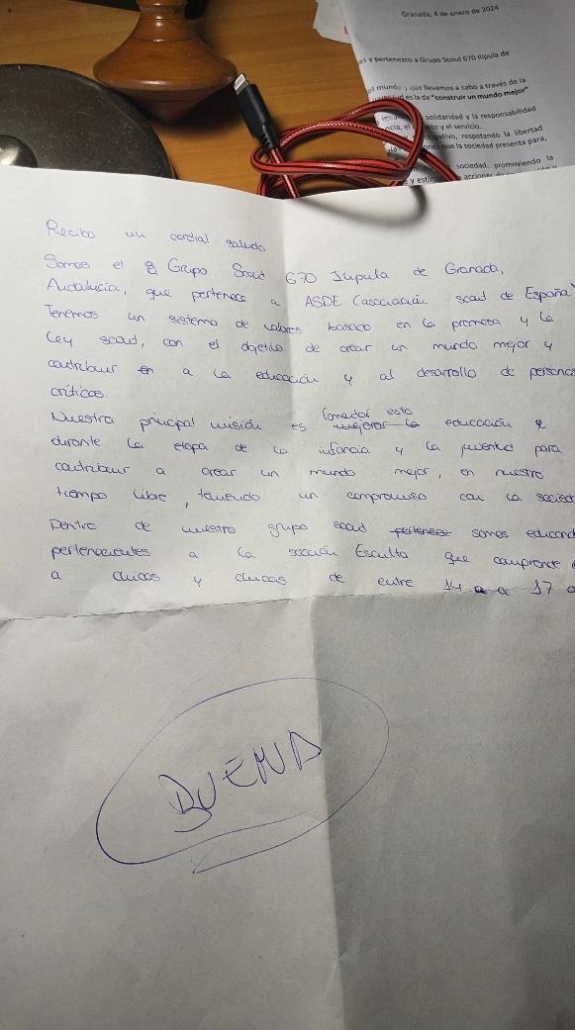 Granada, 4 de enero de 2024
as y pertenezco a Grupo Scout 670 Ilípula de
el mundo y que llevamos a cabo a través de la
es la de "construir un mundo mejor"
solidaridad y la responsabilidad
y el servicio.
respetando la libertad
que la sociedad presenta para,
sociedad, promoviendo la
acciones
Reciba un cordial saludo
Somos el Grupo Scout 670 Ilipula de Granada,
Andalucía, que pertenece a ASDE (asociación scout de España)
Tenemos un sistema de valores basado en la promesa y la
Ley scout, con el objetivo de crear un mundo mejor y
contribuir en a la educación y al desarrollo de personas
críticas.
Nuestra principal misión es fomentar esta mejorar la educación
durante la etapa de la infancia y la juventud para
contribuir a crear un mundo mejor, en nuestro
tiempo libre, teniendo un compromiso con la socied
Dentro de nuestro grupo scout pertenece somos educand
pertenecientes a la sección Esculta que comprende
a chicos y chicas de entre 14 a 17 a
BUENA